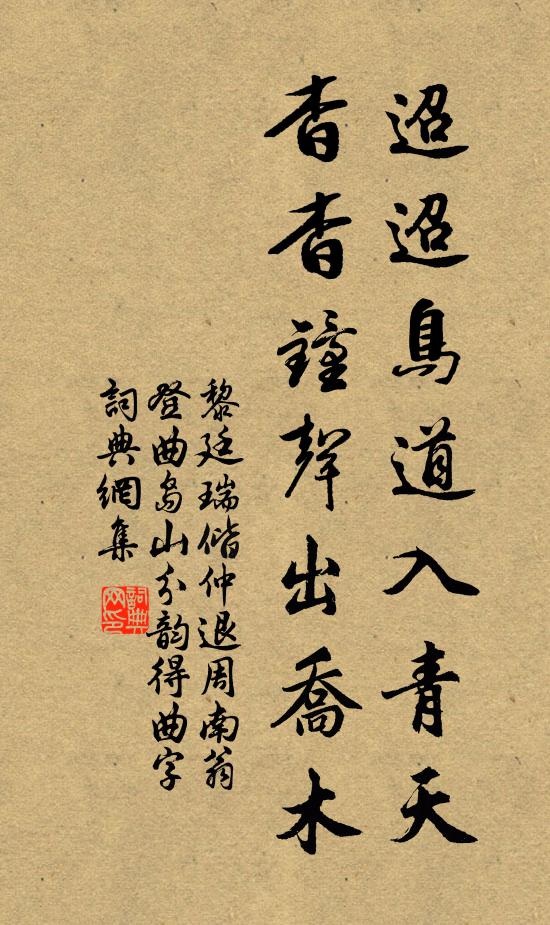 迢迢鳥道入青天
杳杳鐘聲出喬木
黎廷瑞偕仲退周南翁
登曲島山分韵得曲字
詞典網集
詞典
网印